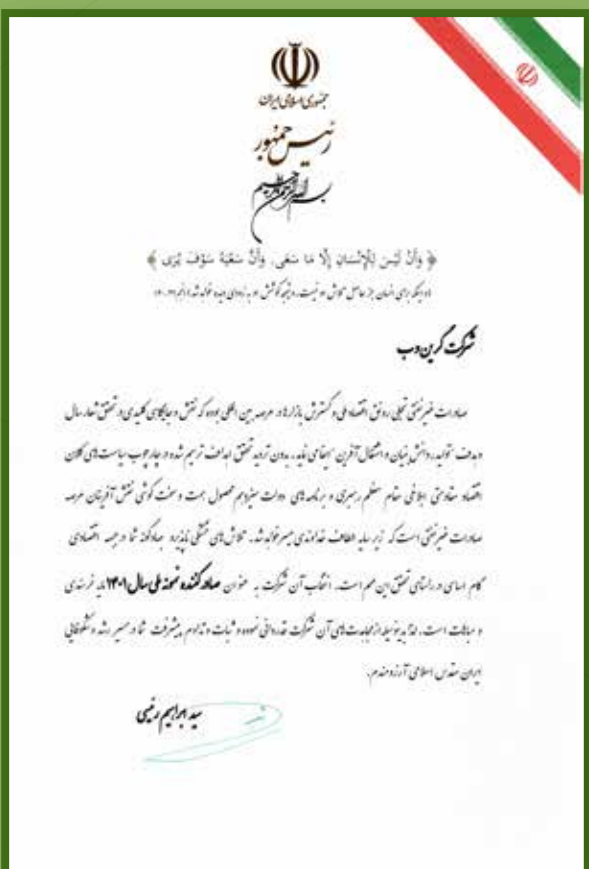 جمهوری اسلامی ایران
رئیس جمهور
بسم الله الرحمن الرحیم
﴿ وَأَنْ لَيْسَ لِلْإِنْسَانِ إِلَّا مَا سَعَى، وَأَنَّ سَعْيَهُ سَوْفَ يُرَى ﴾
و اینکه برای انسان جز حاصل تلاش او نیست، و نتیجه کوشش او به زودی دیده خواهد شد
شرکت گرین وب
صادرات غیرنفتی تجلی رونق اقتصاد ملی و گسترش بازارها در عرصه بین المللی بوده که نقش و جایگاهی کلیدی در تحقق شعار سال
تولید، دانش بنیان و اشتغال آفرین ایفا می نماید. بدون تردید تحقق اهداف ترسیم شده در چارچوب سیاست های کلان
اقتصاد مقاومتی ابلاغی مقام معظم رهبری و برنامه های دولت سیزدهم محصول همت و سخت کوشی نقش آفرینان عرصه
صادرات غیرنفتی است که زیر سایه الطاف خداوندی میسر خواهد شد. تلاش های خستگی ناپذیر شما در جبهه اقتصادی
گام اساسی در راستای تحقق این مهم است. انتخاب آن شرکت به عنوان صادر کننده نمونه ملی سال ۱۴۰۱ مایه خرسندی
و مباهات است. لذا بدینوسیله از مجاهدت های آن شرکت قدردانی نموده و ثبات و تداوم پیشرفت شما در مسیر رشد و شکوفایی
ایران مقدس اسلامی آرزومندم.
سید ابراهیم رئیسی